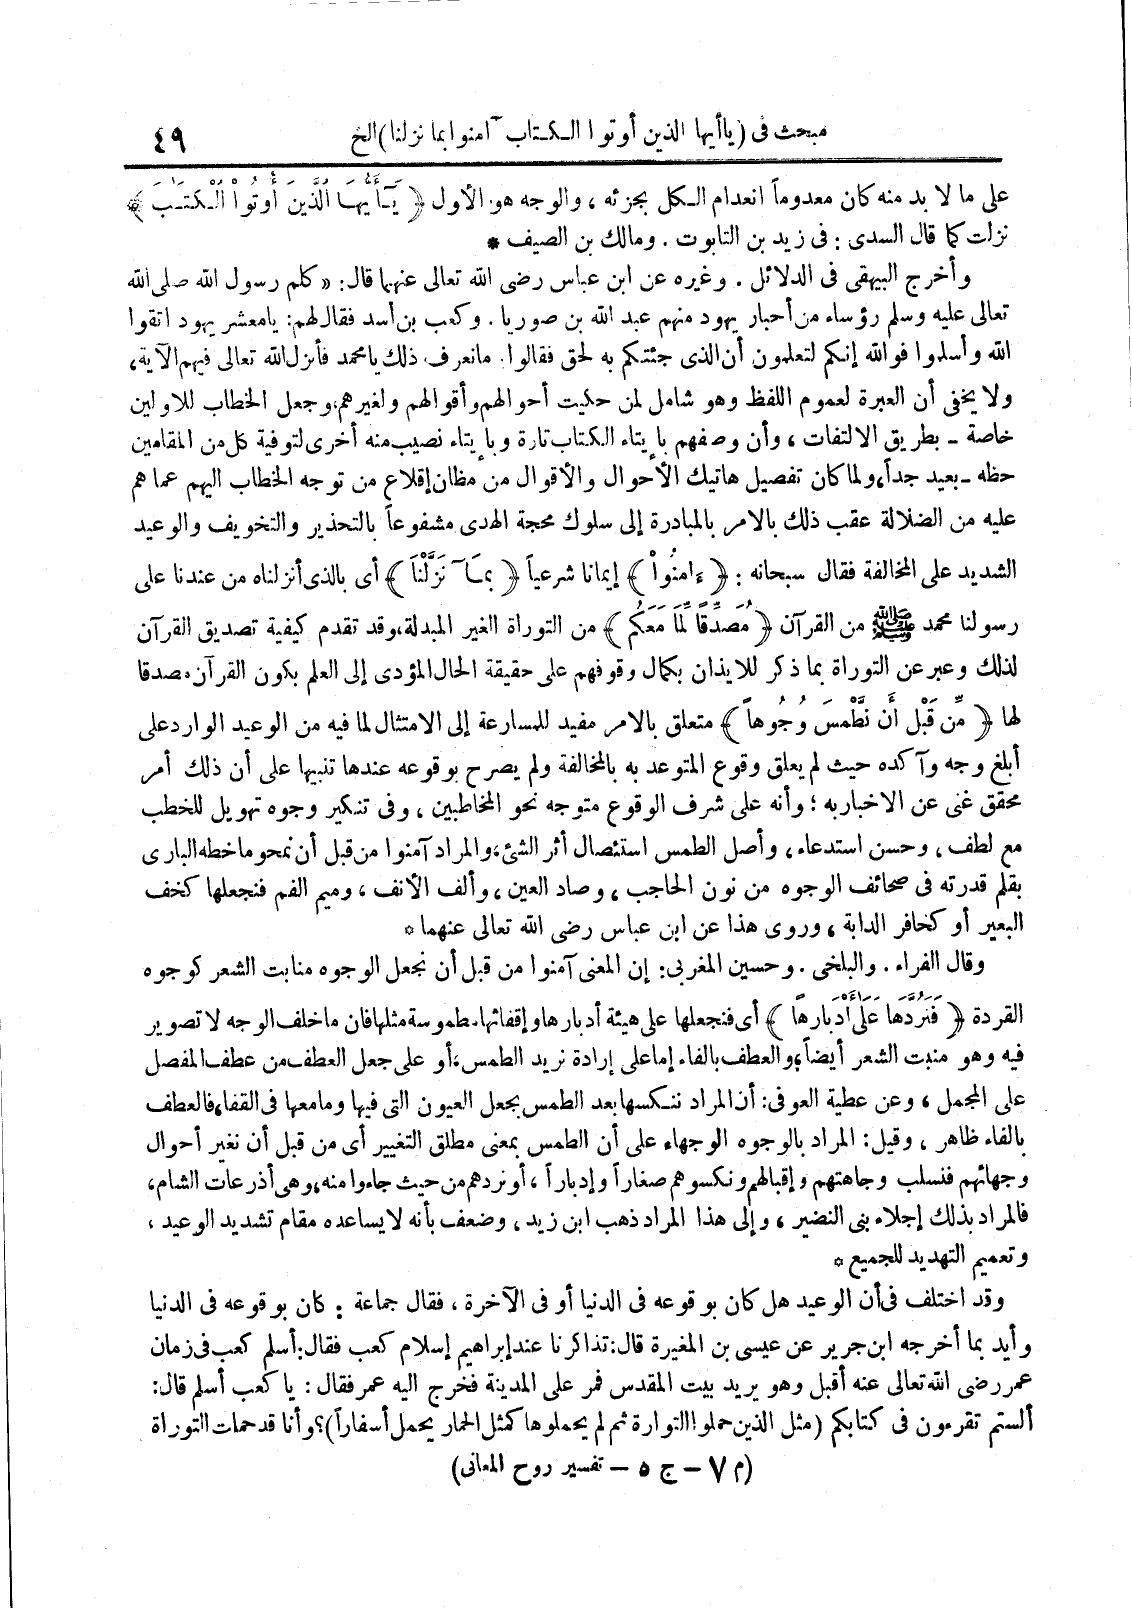 مبحث فى (ياأيها الذين أوتوا الكتاب آمنوا بما نزلنا) الخ ٤٩
على ما لا بد منه كان معدوماً انعدام الكل بجزئه ، والوجه هو الأول ﴿ يَـٰٓأَيُّهَا ٱلَّذِينَ أُوتُوا۟ ٱلْكِتَـٰبَ ﴾
نزلت كما قال السدى : فى زيد بن التابوت . ومالك بن الصيف *
وأخرج البيهقى فى الدلائل . وغيره عن ابن عباس رضى الله تعالى عنهما قال: «كلم رسول الله صلى الله
تعالى عليه وسلم رؤساء من أحبار يهود منهم عبد الله بن صوريا . وكعب بن أسد فقال لهم: يامعشر يهود اتقوا
الله وأسلموا فوالله إنكم لتعلمون أن الذى جئتكم به لحق فقالوا: مانعرف ذلك يامحمد فأنزل الله تعالى فيهم الآية،
ولا يخفى أن العبرة لعموم اللفظ وهو شامل لمن حكيت أحوالهم وأقوالهم ولغيرهم، وجعل الخطاب للاولين
خاصة ـ بطريق الالتفات ، وأن وصفهم بايتاء الكتاب تارة وبايتاء نصيب منه أخرى لتوفية كل من المقامين
حظه ـ بعيد جداً، ولما كان تفصيل هاتيك الأحوال والأقوال من مظان إقلاع من توجه الخطاب اليهم عما هم
عليه من الضلالة عقب ذلك بالامر بالمبادرة إلى سلوك محجة الهدى مشفوعاً بالتحذير والتخويف والوعيد
الشديد على المخالفة فقال سبحانه : ﴿ ءَامِنُوا۟ ﴾ إيمانا شرعياً ﴿ بِمَا نَزَّلْنَا ﴾ أى بالذى أنزلناه من عندنا على
رسولنا محمد ﷺ من القرآن ﴿ مُصَدِّقًا لِّمَا مَعَكُم ﴾ من التوراة الغير المبدلة، وقد تقدم كيفية تصديق القرآن
لذلك وعبر عن التوراة بما ذكر للايذان بكمال وقوفهم على حقيقة الحال المؤدى إلى العلم بكون القرآن مصدقا
لها ﴿ مِّن قَبْلِ أَن نَّطْمِسَ وُجُوهاً ﴾ متعلق بالامر مفيد للمسارعة إلى الامتثال لما فيه من الوعيد الوارد على
أبلغ وجه وآكده حيث لم يعلق وقوع المتوعد به بالمخالفة ولم يصرح بوقوعه عندها تنبيها على أن ذلك أمر
محقق غنى عن الاخباربه ؛ وأنه على شرف الوقوع متوجه نحو المخاطبين ، وفى تنكير وجوه تهويل للخطب
مع لطف ، وحسن استدعاء ، وأصل الطمس استئصال أثر الشئ، والمراد آمنوا من قبل أن نمحو ماخطه البارى
بقلم قدرته فى صحائف الوجوه من نون الحاجب ، وصاد العين ، وألف الأنف ، وميم الفم فنجعلها كخف
البعير أو كحافر الدابة ، وروى هذا عن ابن عباس رضى الله تعالى عنهما *
وقال الفراء . والبلخى . وحسين المغربى: إن المعنى آمنوا من قبل أن نجعل الوجوه منابت الشعر كوجوه
القردة ﴿ فَنَرُدَّهَا عَلَىٰٓ أَدْبَارِهَا ﴾ أى فنجعلها على هيئة أدبارها وإقفائها مطموسة مثلها فان ماخلف الوجه لا تصوير
فيه وهو منبت الشعر أيضاً، والعطف بالفاء إما على إرادة نريد الطمس، أو على جعل العطف من عطف المفصل
على المجمل ، وعن عطية العوفى: أن المراد ننكسها بعد الطمس بجعل العيون التى فيها ومامعها فى القفا، فالعطف
بالفاء ظاهر ، وقيل: المراد بالوجوه الوجهاء على أن الطمس بمعنى مطلق التغيير أى من قبل أن نغير أحوال
وجهائهم فنسلب وجاهتهم وإقبالهم ونكسوهم صغاراً وإدباراً ، أو نردهم من حيث جاءوا منه، وهى أذرعات الشام،
فالمراد بذلك إجلاء بنى النضير ، وإلى هذا المراد ذهب ابن زيد ، وضعف بأنه لا يساعده مقام تشديد الوعيد ،
وتعميم التهديد للجميع *
وقد اختلف فى أن الوعيد هل كان بوقوعه فى الدنيا أو فى الآخرة ، فقال جماعة : كان بوقوعه فى الدنيا
وأيد بما أخرجه ابن جرير عن عيسى بن المغيرة قال: تذاكرنا عند إبراهيم إسلام كعب فقال: أسلم كعب فى زمان
عمر رضى الله تعالى عنه أقبل وهو يريد بيت المقدس فمر على المدينة فخرج اليه عمر فقال : ياكعب أسلم قال:
ألستم تقرءون فى كتابكم (مثل الذين حملوا التوراة ثم لم يحملوها كمثل الحمار يحمل أسفاراً)؟ وأنا قد حملت التوراة
(م ٧ – ج ٥ – تفسير روح المعانى)